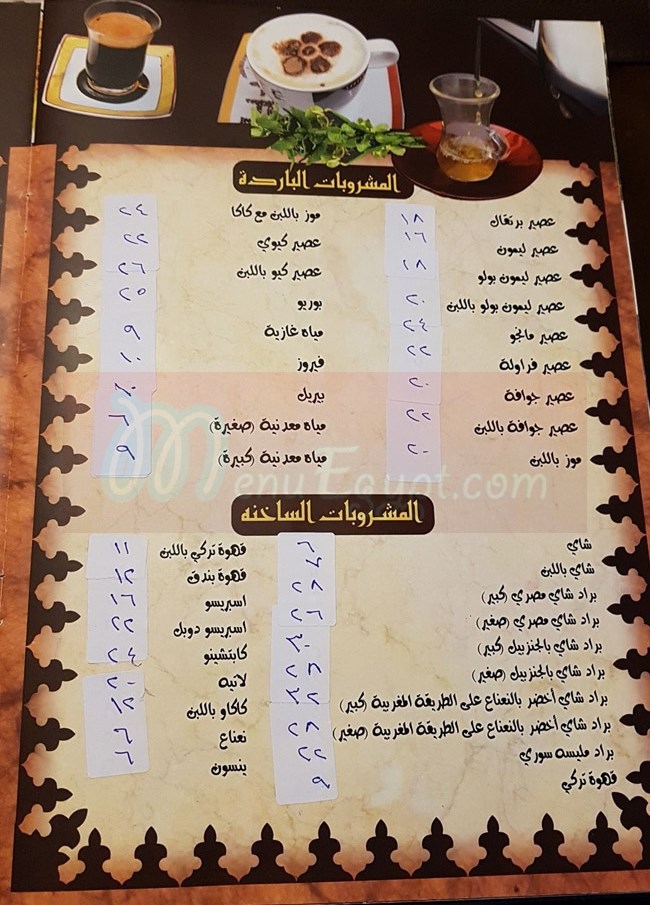 المشروبات الباردة
عصير برتقال ١٨
عصير ليمون ١٦
عصير ليمون بولو ١٨
عصير ليمون بولو باللبن ٢٠
عصير مانجو ٢٤
عصير فراولة ٢٢
عصير جوافة ٢٠
عصير جوافة باللبن ٢٢
موز باللبن ٢٠
موز باللبن مع كاكا ٢٤
عصير كيوي ٢٢
عصير كيو باللبن ٢٦
بوريو ٢٥
مياه غازية ٩
فيروز ١٠
بيريل ١٠
مياه معدنية (صغيرة)
مياه معدنية (كبيرة) ٩
MenuEgypt.com
المشروبات الساخنه
شاي
شاي باللبن
براد شاي مصري (كبير) ٢٨
براد شاي مصري (صغير) ٢٦
براد شاي بالجنزبيل (كبير) ٣٠
براد شاي بالجنزبيل (صغير)
براد شاي أخضر بالنعناع على الطريقة المغربية (كبير) ٣٢
براد شاي أخضر بالنعناع على الطريقة المغربية (صغير) ٢٨
براد مليسه سوري ٢٢
قهوة تركي ٩
قهوة تركي باللبن ١١
قهوة بندق ١٢
اسبريسو ١٦
اسبريسو دوبل ٢٢
كابتشينو ٢٤
لاتيه ٢٠
كاكاو باللبن ١٢
نعناع
ينسون